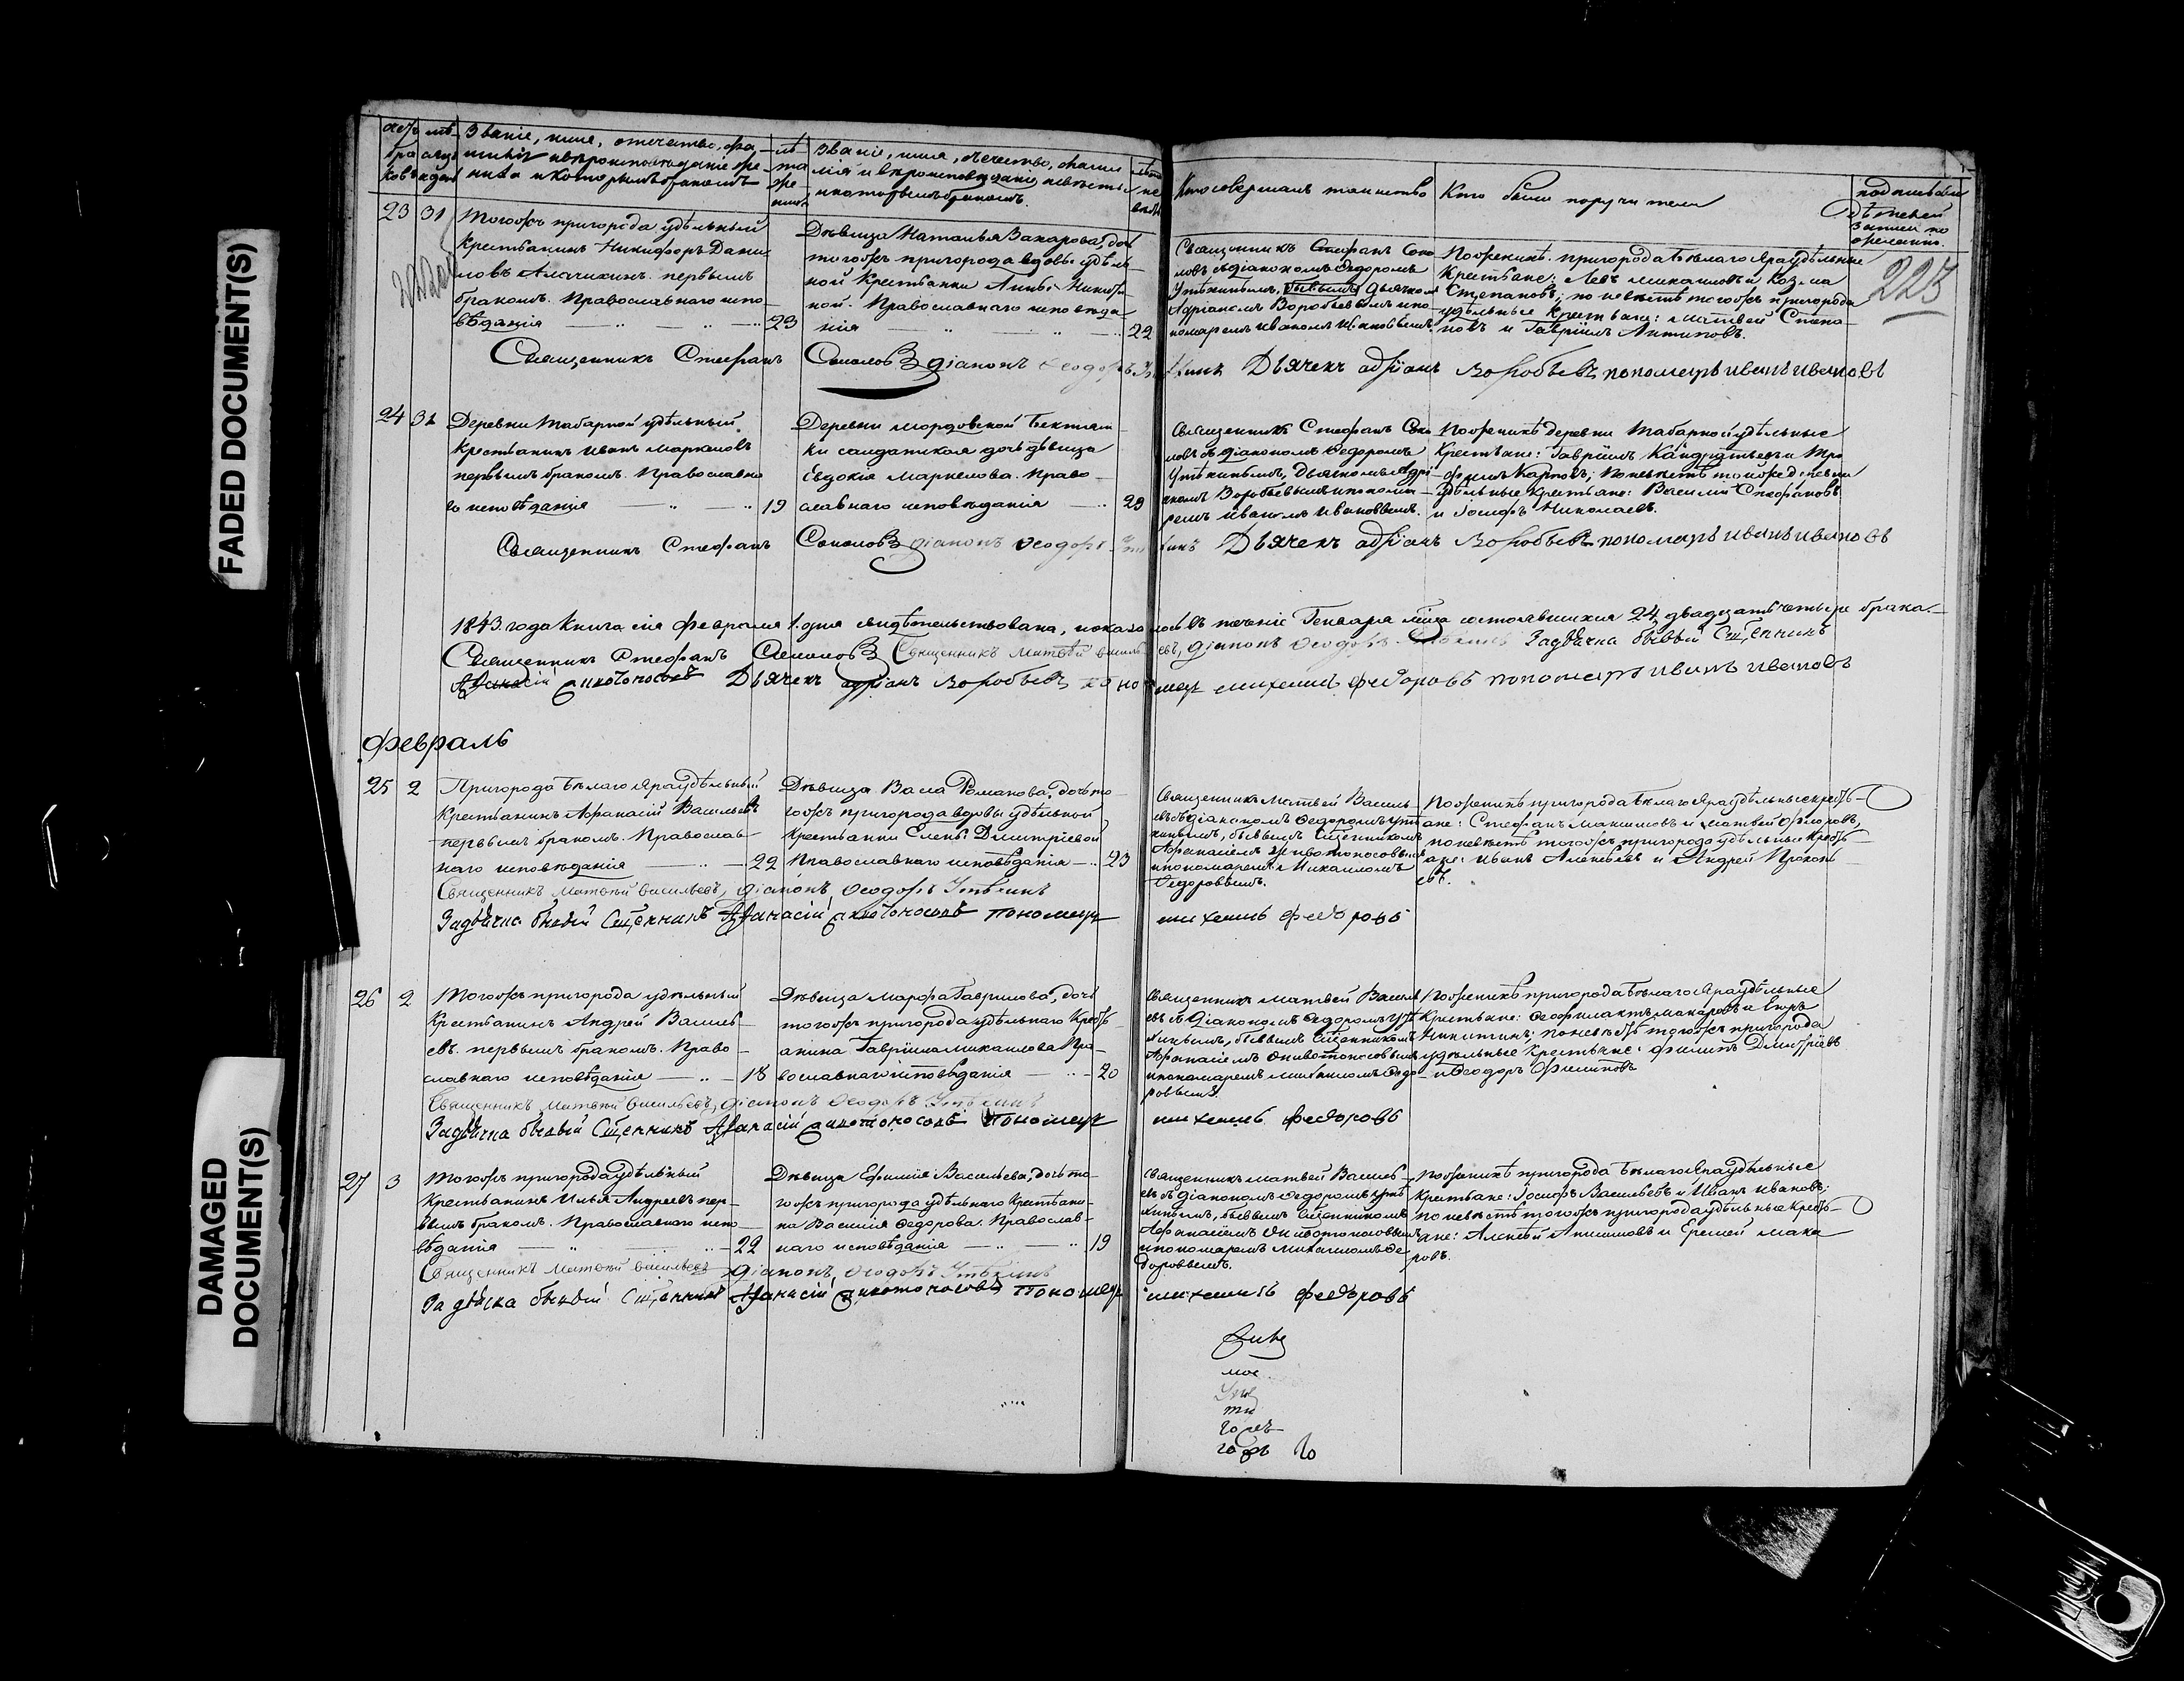 FADED DOCUMENT(S)
DAMAGED
DOCUMENT(S)
Званіе, имя, отчество, фа-
миліи и вѣроисповѣданіе же-
ниха и которымъ бракомъ
лѣ-
та
же-
Званіе, имя, отечество, фами-
лія и вѣроисповѣданіе невѣсты
и которымъ бракомъ.
Кто совершалъ таинство
Кто были поручители
223
23 31
Тогожъ пригорода удѣльный
Крестьянинъ Никифоръ Дани-
ловъ первымъ
бракомъ. Православнаго испо-
вѣданія 23
Дѣвица Наталья Захарова, дочь
тогожъ пригорода вдовы удѣль-
ной Крестьянки Анны Никити-
ной. Православнаго исповѣда-
нія 22
Священникъ Стефанъ Соко-
ловъ съ діакономъ Федоромъ
Утѣхинымъ, дьячкомъ
Адріаномъ Воробьевымъ и по-
номаремъ Иваномъ Ивановымъ.
По женихѣ пригорода Бѣлаго Яра удѣльные
Крестьяне: Левъ и Козма
Степановъ; по невѣстѣ тогожъ пригорода
удѣльные Крестьяне: Матвей Степа-
новъ и Гавріилъ Антиповъ.
Священникъ Стефанъ Соколовъ діаконъ Ѳеодоръ Утѣхинъ Дьячекъ адріанъ Воробьевъ пономарь иванъ ивановъ
24 31
Деревни Табарной удѣльный
Крестьянинъ Иванъ Маркеловъ
первымъ бракомъ. Православна-
го исповѣданія 19
Деревни Мордовской Бектяш-
ки солдатская дочь дѣвица
Евдокія Маркелова. Право-
славнаго исповѣданія 20
Священникъ Стефанъ Соко-
ловъ съ діакономъ Федоромъ
Утѣхинымъ, Дьячкомъ Адрі-
аномъ Воробьевымъ и понома-
ремъ Иваномъ Ивановымъ.
По женихѣ деревни Табарной удѣльные
Крестьяне: Гавріилъ Кандратьевъ и Тро-
фимъ Карповъ; по невѣстѣ тойже деревни
удѣльные Крестьяне: Василій Стефановъ
и Іосифъ Николаевъ.
Священникъ Стефанъ Соколовъ діаконъ Ѳеодоръ Утѣхинъ Дьячекъ адріанъ Воробьевъ пономарь иванъ ивановъ
1843. года Книга сія февраля 1. дня свидѣтельствована, показалось въ теченіе Генваря мѣца состоявшихся 24, двадцать четыре брака.
Священникъ Стефанъ Соколовъ Священникъ Матвѣй Васильевъ, діаконъ Ѳеодоръ Утѣхинъ За дьячка бывый Сщенникъ
Афанасій Дьячекъ адріанъ Воробьевъ пономарь михеилъ федоровъ пономарь иванъ ивановъ
Февраль
25 2
Пригорода Бѣлаго Яра удѣльный
Крестьянинъ Афанасій Васильевъ
первымъ бракомъ. Православ-
наго исповѣданія 22
Дѣвица Васа Романова, дочь то-
гожъ пригорода вдовы удѣльной
Крестьянки Елены Димитріевой
Православнаго исповѣданія 23
Священникъ Матвей Василь-
евъ съ діакономъ Федоромъ Утѣ-
хинымъ, бывшимъ Сщенникомъ
Афанасіемъ Живоносовымъ
и пономаремъ Михаиломъ
Федоровымъ.
По женихѣ пригорода Бѣлаго Яра удѣльные кресть-
яне: Стефанъ Максимовъ и Матвей Федоровъ,
по невѣстѣ тогожъ пригорода удѣльные Кресть-
яне: Иванъ Алексѣевъ и Андрей Прокопь-
евъ.
Священникъ Матвѣй Васильевъ, діаконъ Ѳеодоръ Утѣхинъ
За дьячка бывый Сщенникъ Афанасій пономарь михеилъ федоровъ
26 2
Тогожъ пригорода удѣльный
Крестьянинъ Андрей Василь-
евъ. первымъ бракомъ. Право-
славнаго исповѣданія 18
Дѣвица Марфа Гаврилова, дочь
тогожъ пригорода удѣльнаго Кресть-
янина Гавріила Михаилова Пра-
вославнаго исповѣданія 20
Священникъ Матвей Василь-
евъ съ Діакономъ Федоромъ Утѣ-
хинымъ, бывшимъ Сщенникомъ
и пономаремъ Михаиломъ Федо-
ровымъ.
По женихѣ пригорода Бѣлаго Яра удѣльные
Крестьяне: Феофилактъ Макаровъ и Егоръ
Никитинъ; по невѣстѣ тогожъ пригорода
удѣльные Крестьяне: Филипъ Дмитріевъ
и Феодоръ Филиповъ
Священникъ Матвѣй Васильевъ, діаконъ Ѳеодоръ Утѣхинъ
За дьячка бывый Сщенникъ Афанасій пономарь михеилъ федоровъ
27 3
Тогожъ пригорода удѣльный
Крестьянинъ Илья Андреевъ пер-
вымъ бракомъ. Православнаго испо-
вѣданія 22
Дѣвица Ефимія Васильева, дочь то-
гожъ пригорода удѣльнаго Крестьяни-
на Василія Федорова. Православ-
наго исповѣданія 19
Священникъ Матвей Василь-
евъ съ діакономъ Федоромъ Утѣ-
хинымъ, бывшимъ Сщенникомъ
и пономаремъ Михаиломъ Фе-
доровымъ.
По женихѣ пригорода Бѣлаго Яра удѣльные
Крестьяне: Іосифъ Васильевъ и Иванъ Ивановъ;
по невѣстѣ тогожъ пригорода удѣльные Кресть-
яне: Алексѣй Анисимовъ и Еремей Мака-
ровъ.
Священникъ Матвѣй Васильевъ діаконъ, Ѳеодоръ Утѣхинъ
За дьячка бывый Сщенникъ Афанасій пономарь михеилъ федоровъ